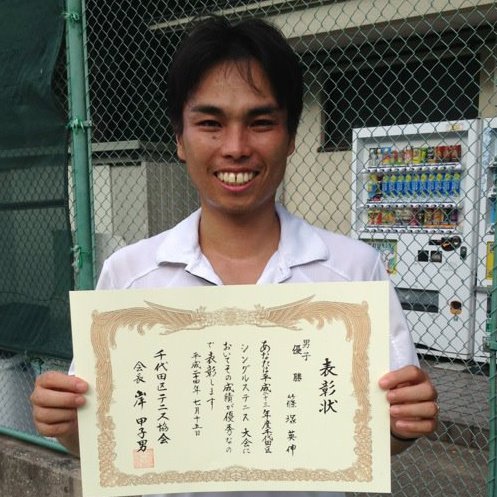 表彰状
男子
優勝 篠塚英伸
あなたは平成二十三年度千代田区
シングルステニス大会に
おいてその成績が優秀なの
で表彰します
平成二十四年七月十五日
千代田区テニス協会
会長 岸 甲子男